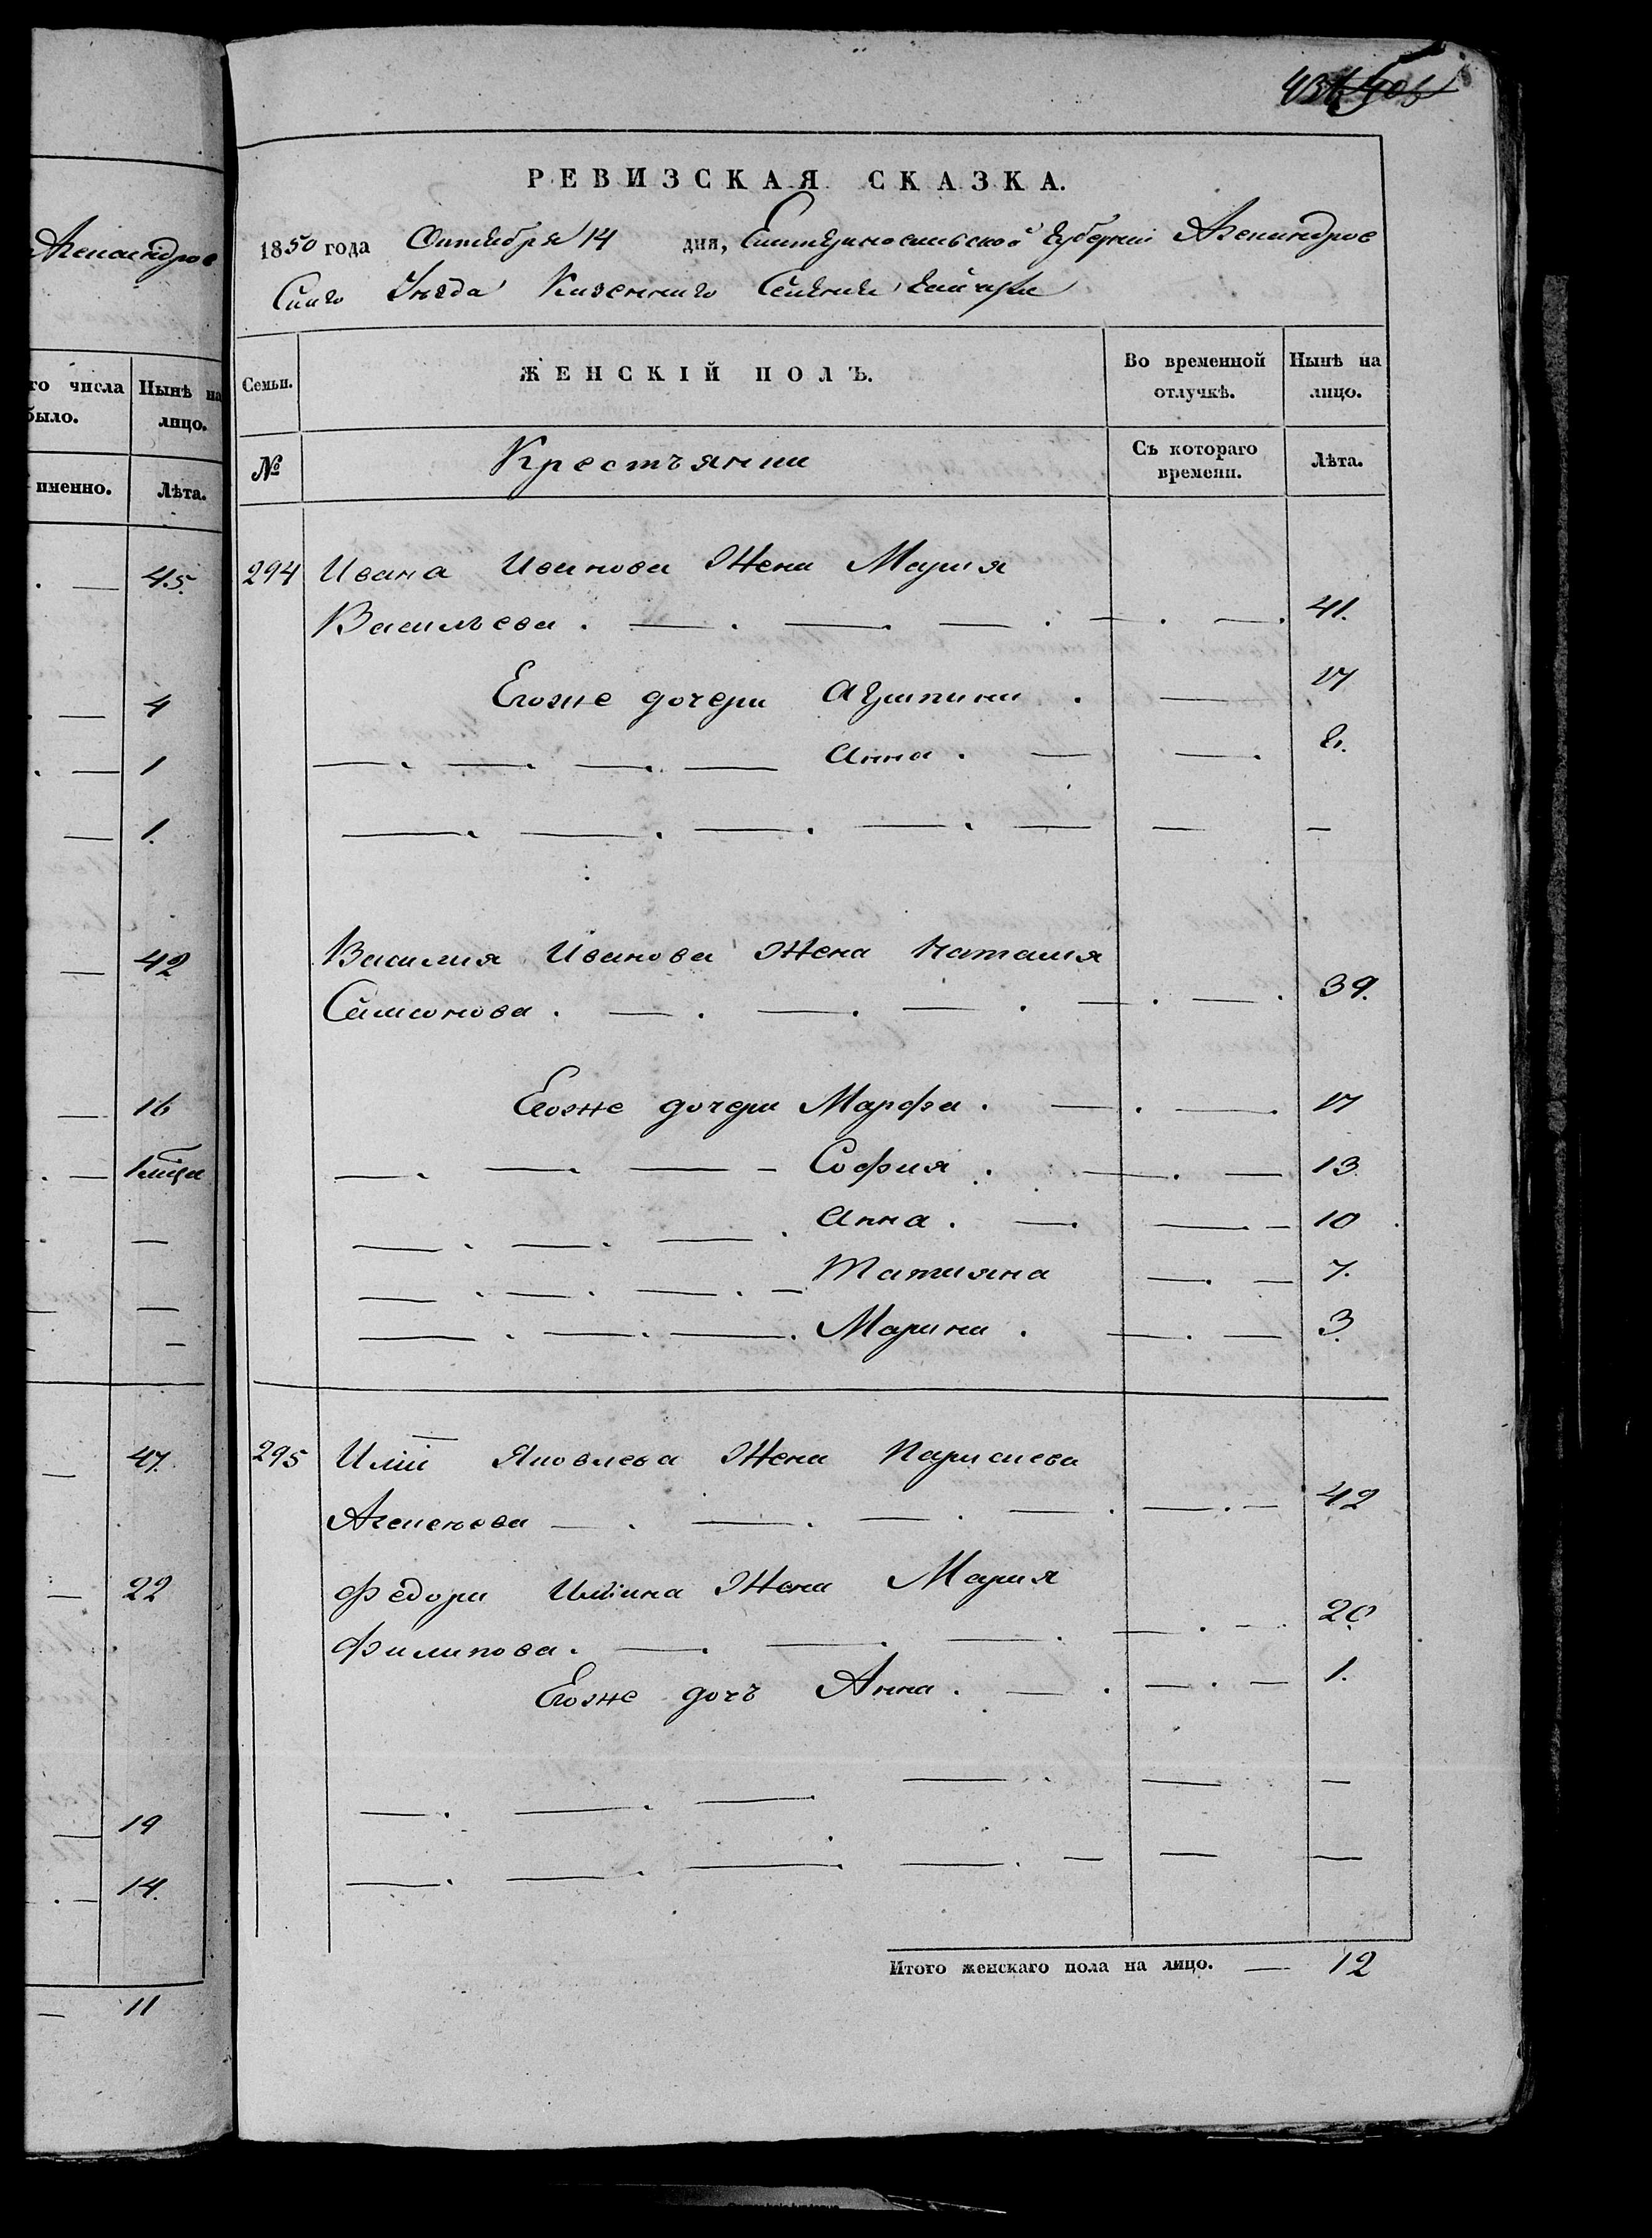 Александров
го числа Нынѣ на
было. лицо.
именно. Лѣта.
45.
4
1
1.
42
16
1 мѣца
47.
22
19
14.
11
РЕВИЗСКАЯ СКАЗКА.
1850 года Октября 14 дня, Екатеринославской Губернии Александров
скаго Уезда Казеннаго Селения Гайчула
Семьи. ЖЕНСКІЙ ПОЛЪ. Во временной отлучкѣ. Нынѣ на лицо.
№ Крестьянки Съ котораго времени. Лѣта.
294 Ивана Иванова Жена Мария
Васильева . 41.
Егоже дочери Агрипина . 17
Анна . 8.
Василия Иванова Жена Наталия
Самсонова . 39.
Егоже дочери Марфа . 17
София . 13
Анна . 10
Татияна 7.
Марина . 3.
295 Илии Яковлева Жена Параскева
Алексеева 42
Федора Илиина Жена Мария
Филипова . 20
Егоже дочь Анна . 1.
Итого женскаго пола на лицо. 12